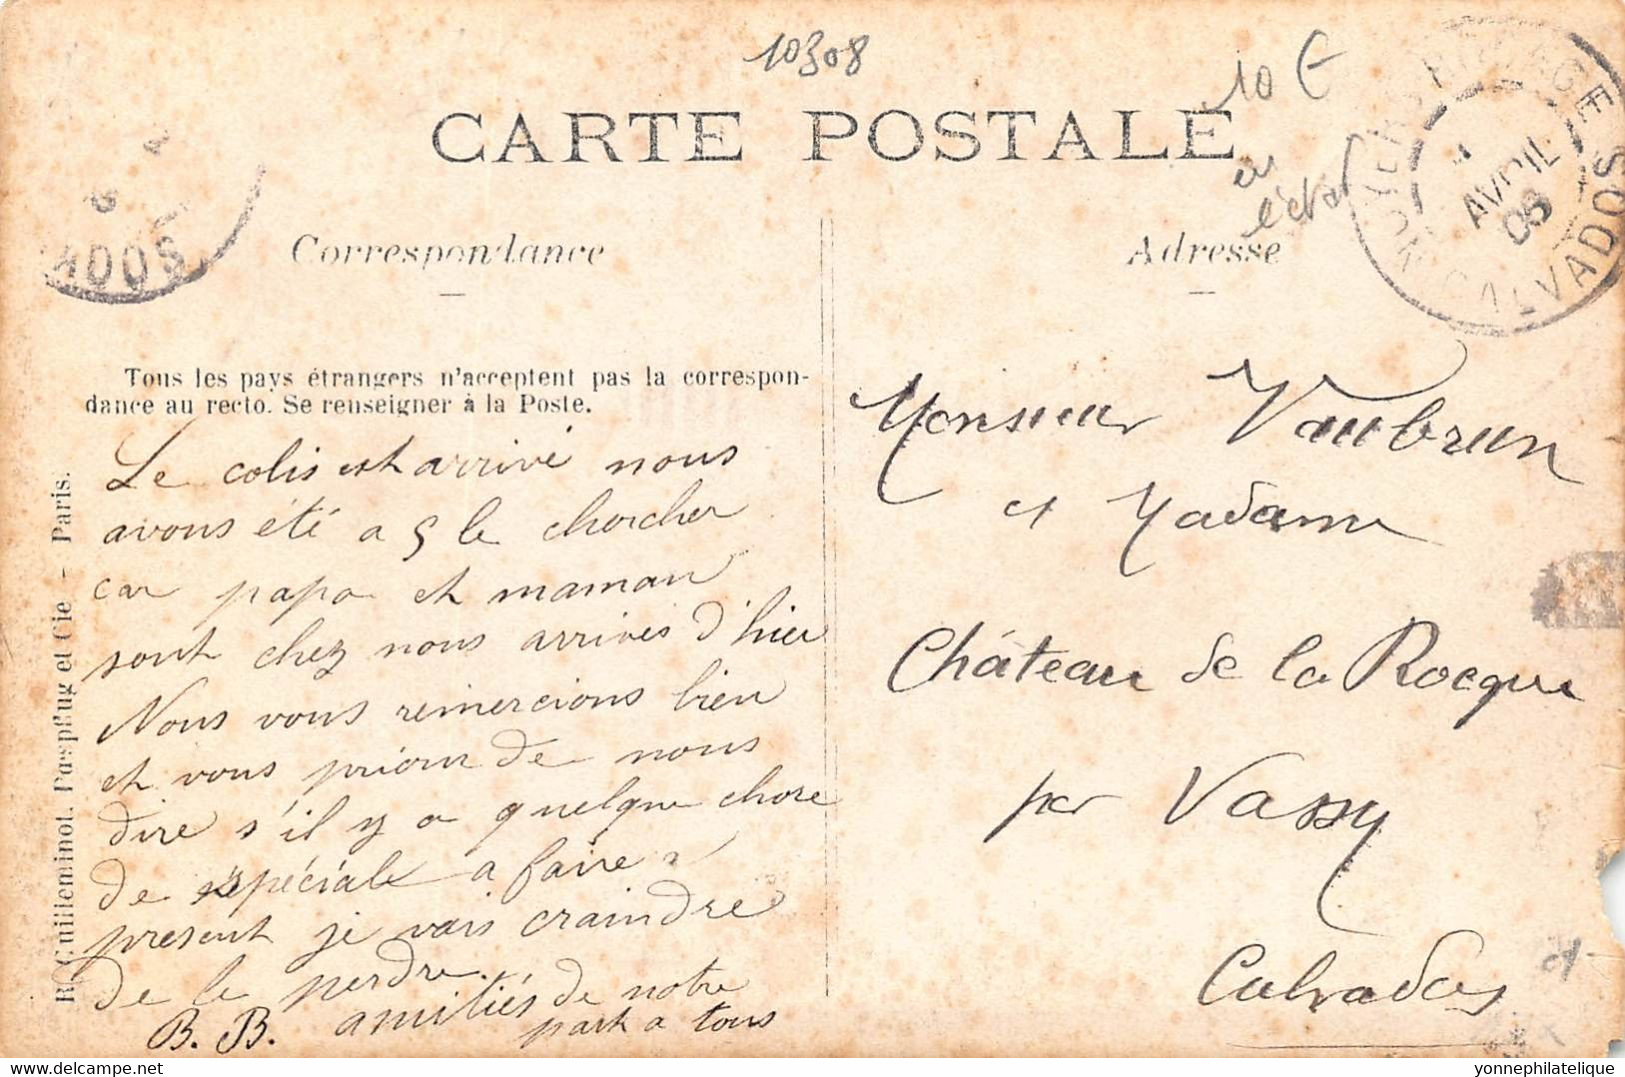 10308
10 €
CARTE POSTALE
AVRIL
08
CALVADOS
ADOS
Correspondance
Adresse
Tous les pays étrangers n'acceptent pas la correspon-
dance au recto. Se renseigner à la Poste.
Le colis est arrivé nous
avons été a 5 le chercher
car papa et maman
sont chez nous arrivés d'hier
Nous vous remercions bien
et vous prions de nous
dire s'il y a quelque chose
de spéciale a faire a
present je vais craindre
de le perdre.
amitiés de notre
part a tous
B. B.
Monsieur Vaubrun
et Madame
Château de la Rocque
par Vassy
Calvados
R. Guilleminot, Bœspflug et Cie - Paris.
www.yonnephilatelique